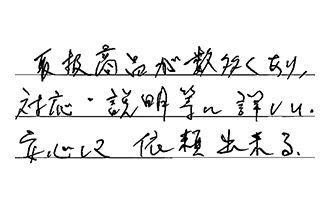 取扱商品が数多くあり,
対応・説明等に詳しい.
安心して 依頼出来る.